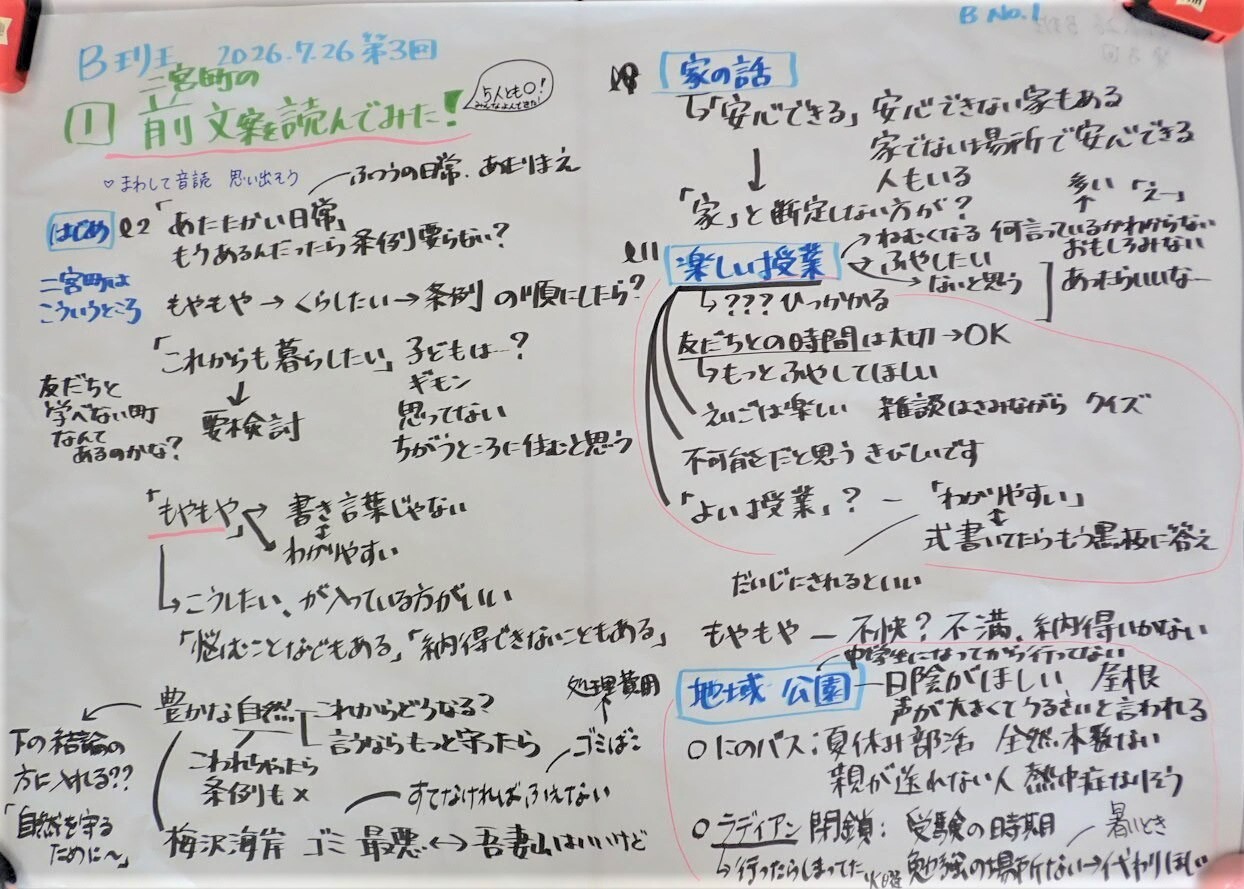 B No.1
B班 2026.7.26 第3回
二宮町の
① 前文案を読んでみた!
5人とも○!
みんなよんできた!
♡まわして音読 思い出そう
ふつうの日常、あたりまえ
はじめ l2 「あたたかい日常」
もうあるんだったら条例要らない?
二宮町は
こういうところ
もやもや→くらしたい→条例 の順にしたら?
「これからも暮らしたい」子どもは…?
↓
要検討
ギモン
思ってない
ちがうところに住むと思う
友だちと
学べない町
なんて
あるのかな?
「もやもや」
書き言葉じゃない
↕
わかりやすい
こうしたい、が入っている方がいい
「悩むことなどもある」「納得できないこともある」
豊かな自然
これからどうなる?
言うならもっと守ったら
こわれちゃったら
条例も×
下の結論の
方に入れる??
「自然を守る
ために〜」
処理費用
↑
ゴミばこ
すてなければふえない
梅沢海岸 ゴミ 最悪↔吾妻山はいいけど
家の話
「安心できる」 安心できない家もある
家でない場所で安心できる
人もいる
↓
「家」と断定しない方が?
l11
楽しい授業
→ねむくなる 何言っているかわからない
多い 「えー」
おもしろみない
→ふやしたい
→ないと思う
あったらいいなー
???ひっかかる
友だちとの時間は大切→OK
もっとふやしてほしい
えいごは楽しい 雑談はさみながら クイズ
不可能だと思う きびしいです
「よい授業」? ー 「わかりやすい」
↕
式書いてたらもう黒板に答え
だいじにされるといい
もやもや ー 不快? 不満、納得いかない
地域 公園
中学生になってから行ってない
日陰がほしい、屋根
声が大きくてうるさいと言われる
○にのバス:夏休み部活 全然本数ない
親が送れない人 熱中症なりそう
○ラディアン閉鎖: 受験の時期
暑いとき
行ったらしまってた 火曜 勉強の場所ない→代わりほしい